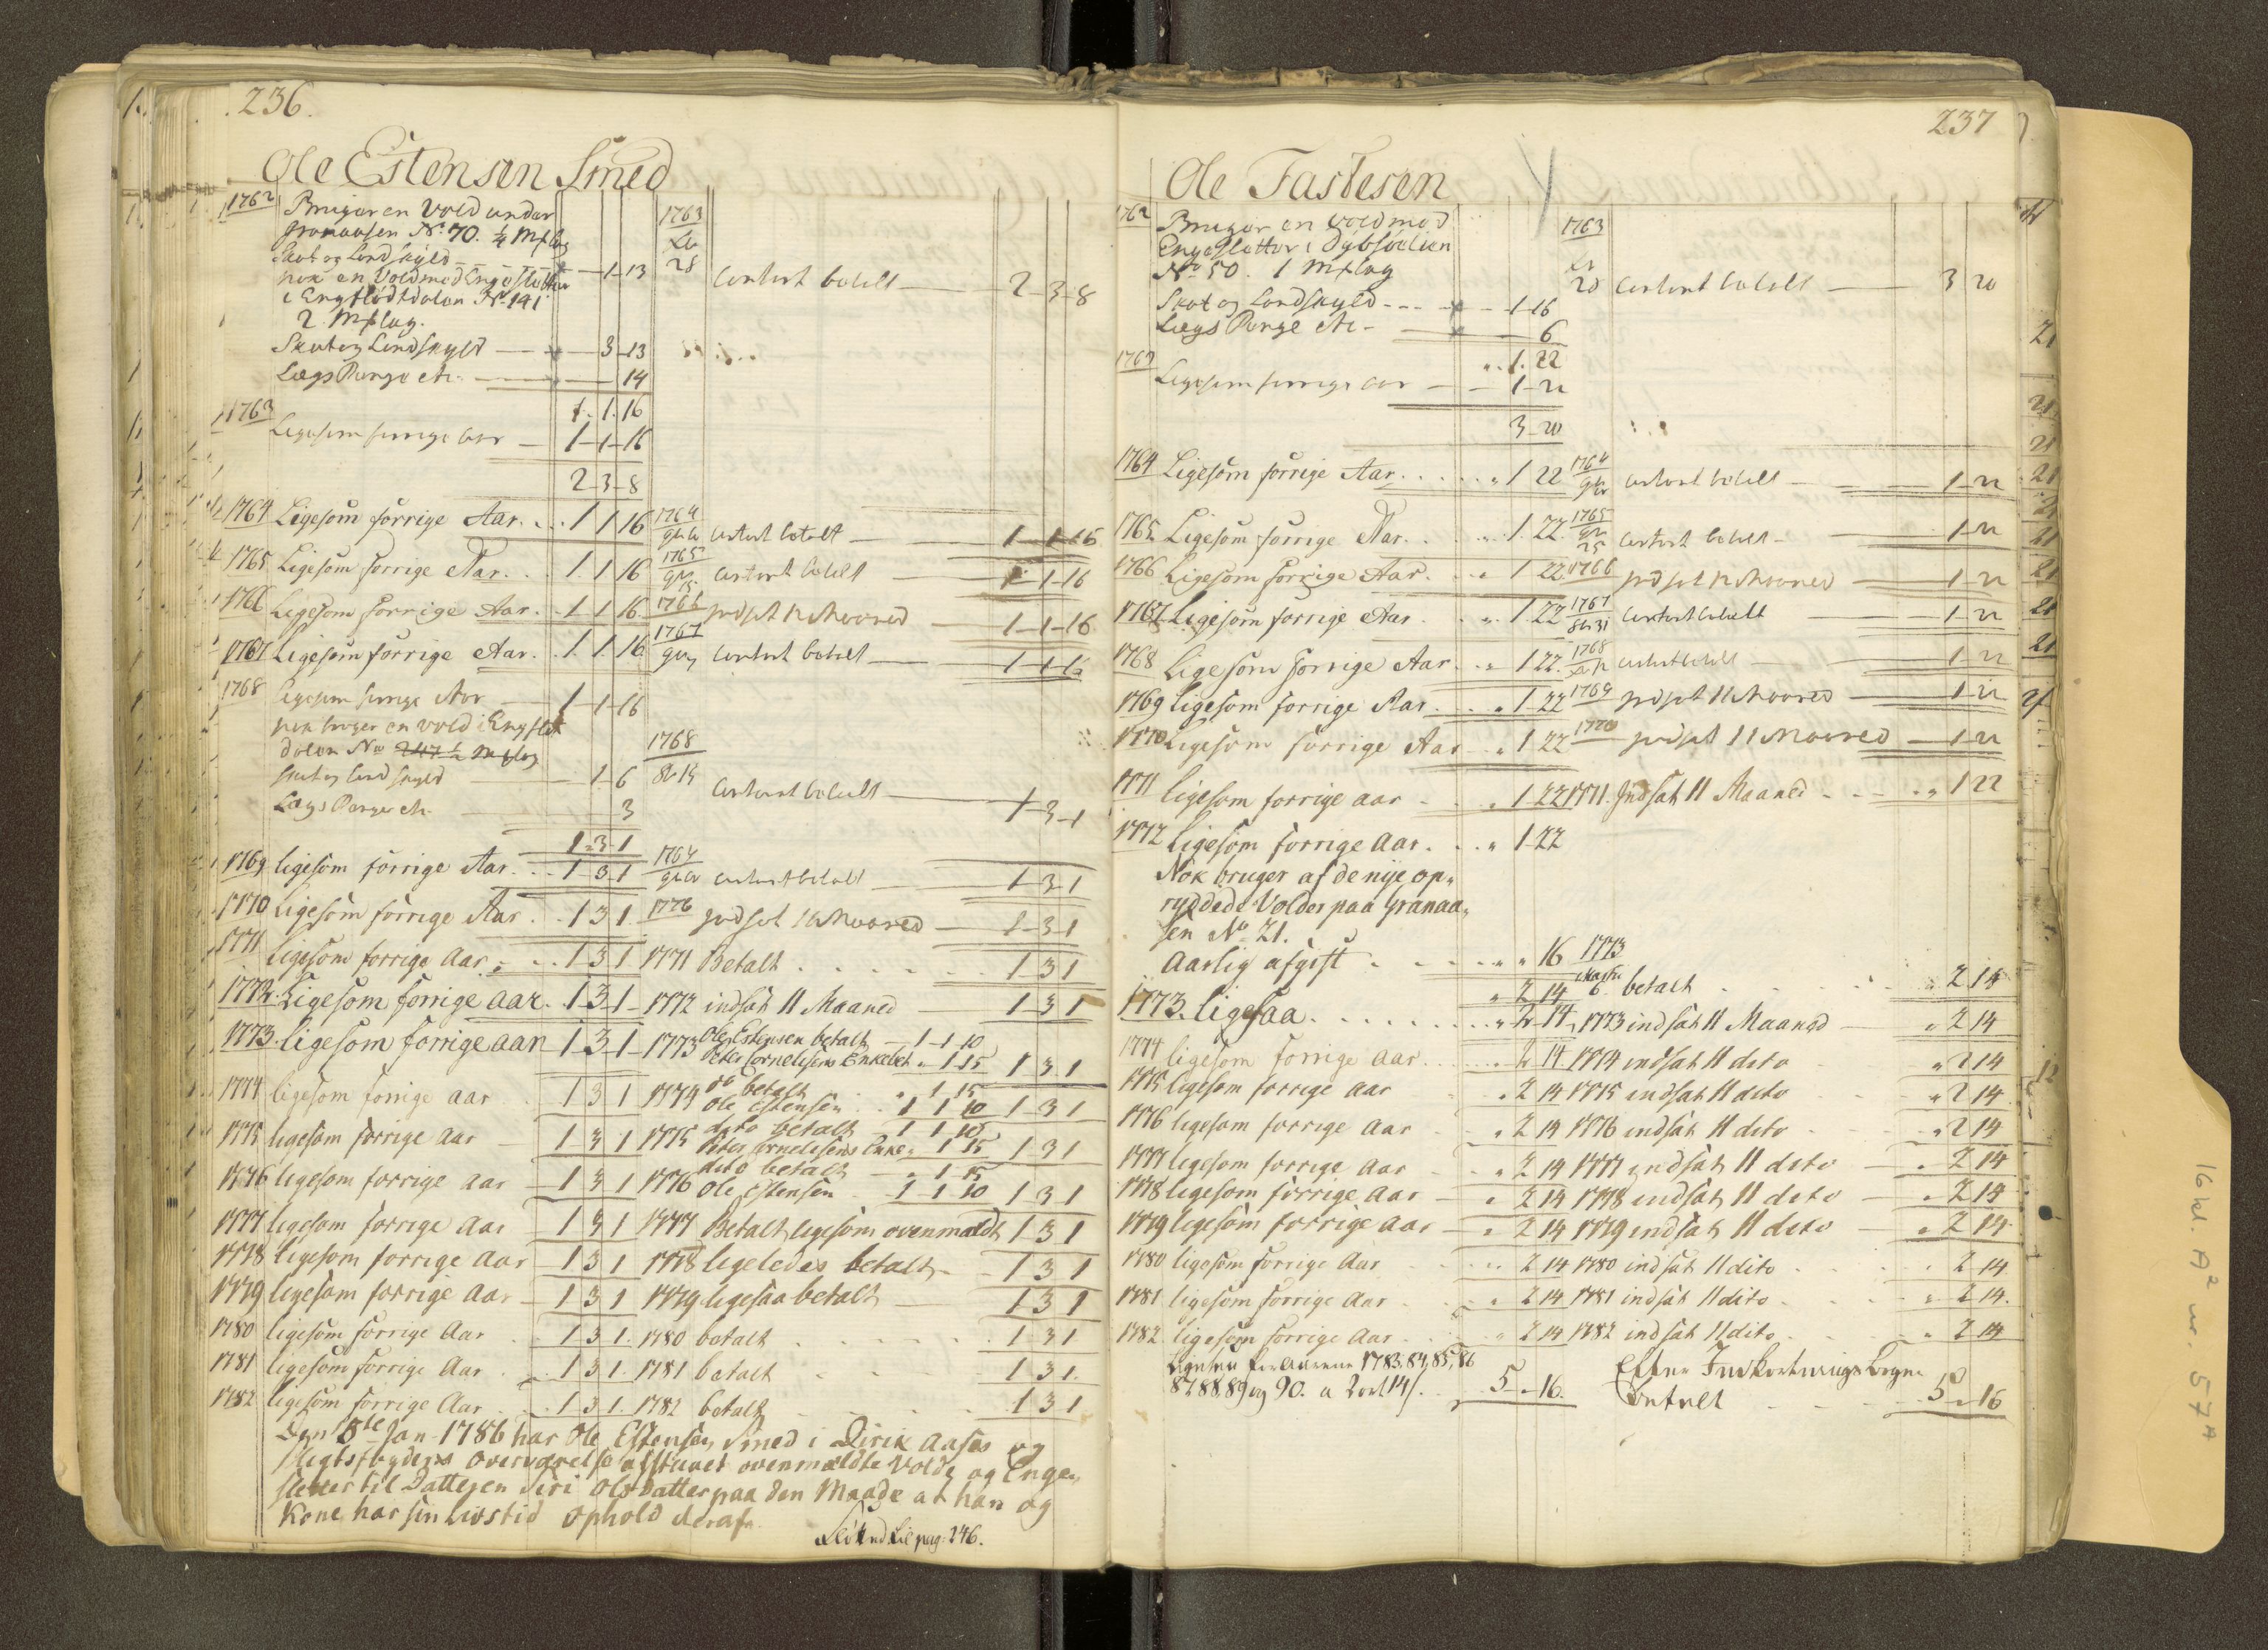 236.
Ole Estensen Smed
1762 Bruger en Vold under
Granaasen No. 70. ¼ Mk lag
Skat og Landskyld - - - - 1-13
nok en Vold med Engesletter
i Engslødtdalen No. 141
2. Mk lag.
Skat og Landskyld - - 3-13
Lægs Penge etc. - - 14
1. 1. 16
1763 Ligesom forrige aar - 1-1-16
2-3-8
1763
28 Contant betalt - 2-3-8
1764 Ligesom forrige Aar. . . 1 1 16 1764 Contant betalt - 1-1-16
1765 Ligesom forrige Aar. . . 1. 1 16 1765 Contant betalt - 1-1-16
1766 Ligesom forrige Aar. . 1 1 16 1766 indsat 12 Maaned - 1-1-16
1767 Ligesom forrige Aar. . 1. 1 16 1767 Contant betalt - 1-1-16
1768 Ligesom forrige Aar - 1-1-16
nok bruger en vold i Engslet
dalen No 247 ½ Mk lag
skat og land skyld - 1-6
Lægs Penge etc. - 3
1-3-1
1768
Contant betalt - 1-3-1
1769 ligesom forrige Aar. . . 1-3-1 1769 Contant betalt - 1-3-1
1770 Ligesom forrige Aar. . 1 3 1 1770 indsat 11 Maaned - 1-3-1
1771 ligesom forrige Aar. . . 1 3 1 1771 Betalt . . . . . 1 3 1
1772. Ligesom forrige aar. . 1 3 1 - 1772 indsat 11 Maaned - 1-3 1
1773. ligesom forrige aar 1-3-1 - 1773 Ole Estensen betalt - 1-1-10
Peter Cornelisens Enke bet. „ 1-15 1 3 1
1774 ligesom forrige aar . . 1 3 1 1774 do betalt „ 1 15
Ole Estensen . . 1 1 10 1-3 1
1775 ligesom forrige Aar - 1 3 1 1775 dito betalt - 1 1 10
Peter Cornelisens Enke „ 1 15 1 3 1
1776 ligesom forrige aar - 1 3 1 1776 dito betalt - „ 1 15
Ole Estensen . 1-1 10 1 3 1
1777 ligesom forrige Aar - 1 3 1 1777 Betalt ligesom ovenmældt 1 3 1
1778 ligesom forrige Aar - 1 3 1 1778 ligeledes betalt - 1 3 1
1779 ligesom forrige Aar - 1 3 1 1779 ligesaa betalt - 1 3 1
1780 ligesom forrige Aar . . 1 3 1. 1780 betalt . . . . 1 3 1
1781 ligesom forrige Aar . . 1 3 1. 1781 betalt . . . . 1 3 1.
1782 ligesom forrige Aar . . 1 3 1. 1782 betalt . . . . 1 3 1
Den 8te Jan. 1786 har Ole Estensen Smed i Dirik Aases og
Slegtsbyders Overværelse afstaaet ovenmældte Volde og Enge-
sletter til Datteren Siri Olsdatter paa den Maade at han og
Kone har sin Livstid Ophold deraf.
Flöttnd til pag. 246.
237
Ole Fastesen
1762 Bruger en Vold med
Engesletter i Dybsødlien
No 50. 1 Mk lag
Skat og Landskyld - - - 1-16
Lægs Penge etc - - 6
„. 1. 22
1763 Ligesom forrige aar - - 1-22
3-20
1763
20 Contant betalt - 3 20
1764 Ligesom forrige Aar. . . . . „ 1 22 1764 Contant betalt - 1-22
1765 Ligesom forrige Aar. . . „ 1. 22. 1765
25 Contant betalt - 1-22
1766 Ligesom forrige Aar. . . „ 1 22. 1766 indsat 12 Maaned - 1-22
1767 Ligesom forrige Aar . . „. 1. 22 1767
31 Contant betalt - 1-22
1768 Ligesom forrige Aar. . „ 1 22. 1768 Contant betalt - 1-22
1769 ligesom forrige Aar. . . „ 1-22 1769 indsat 11 Maaned - 1-22
1770 Ligesom forrige Aar . . „ 1 22 1770 indsat 11 Maaned - 1-22
1771 ligesom forrige aar - . „ 1 22 1771. Indsat 11 Maaned - - - . „ 1 22
1772 Ligesom forrige aar. . . „ 1-22
Nok bruger af de nye op-
ryddede Volder paa Granaa-
sen No 21.
Aarlig afgift . - - - „ „ 16
„ 2 14 1773 Martii 6. betalt . . . . „ 2 14
1773. ligesaa. . . . . . . „ 2-14, 1773 indsat 11 Maaned - „ 2 14
1774 ligesom forrige aar. . . . „ 2 14. 1774 indsat 11 dito . „ 2 14
1775 ligesom forrige aar . „ 2 14 1775 indsat 11 dito . „ 2 14
1776 ligesom forrige aar - „ 2 14 1776 indsat 11 dito . „ 2 14
1777 ligesom forrige aar - „ 2 14 1777 indsat 11 dito - „ 2 14
1778 ligesom forrige aar - „ 2 14 1778 indsat 11 dito - „ 2 14
1779 ligesom forrige aar - „ 2 14 1779 indsat 11 dito - „ 2 14
1780 ligesom forrige Aar . . „ 2 14 1780 indsat 11 dito . . „ 2 14
1781 ligesom forrige Aar . . „ 2 14 1781 indsat 11 dito . . „ 2 14.
1782 ligesom forrige Aar . . „ 2 14 1782 indsat 11 dito . . „ 2 14
Ligesaa for Aarene 1783, 84, 85, 86
87, 88, 89 og 90. a 2 ort 14 s. . 5 „ 16. Efter Indkortnings Bogen
Betalt - - - - 5 „ 16
16 kl. A² nr. 57A